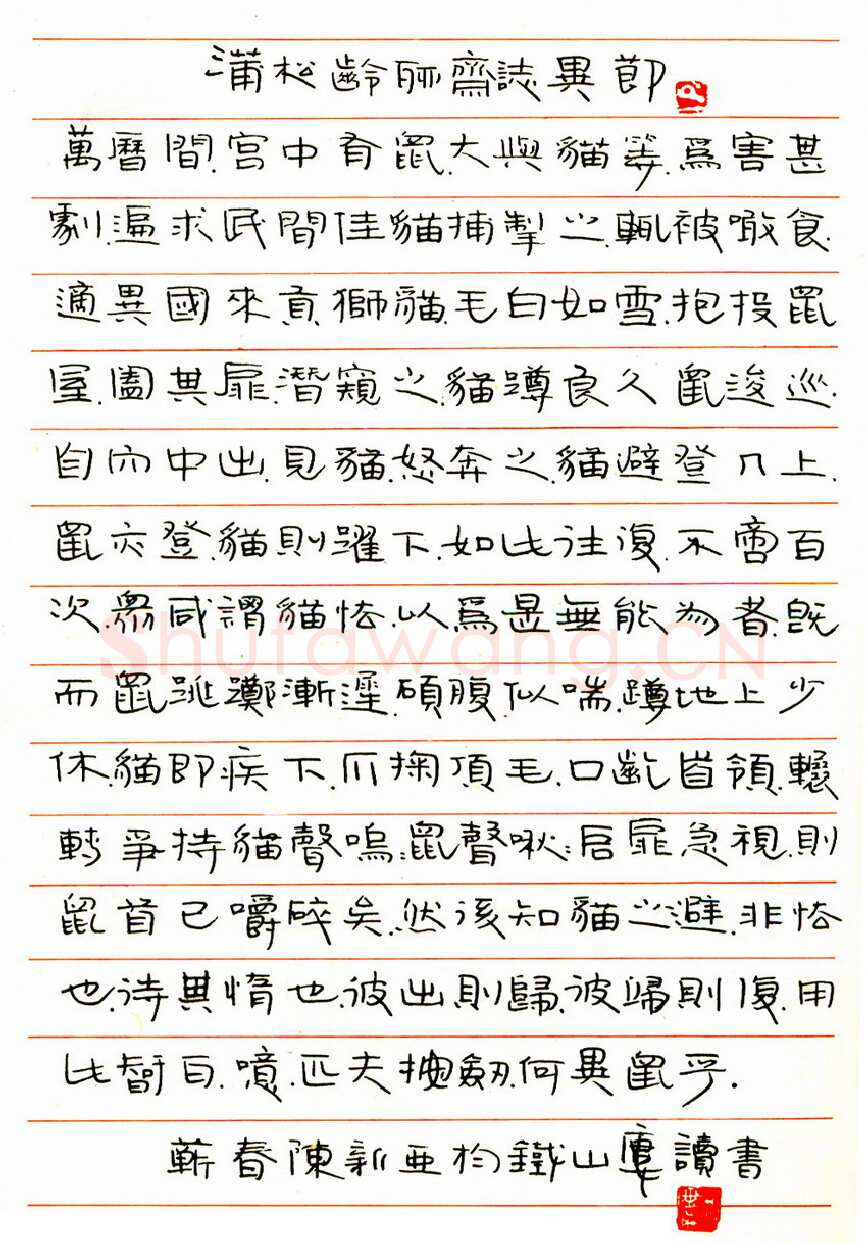 蒲松齡聊齋誌異節
萬曆間.宫中有鼠.大與貓等.爲害甚
劇.遍求民間佳貓捕掣之.輒被噉食.
適異國來貢獅貓.毛白如雪.抱投鼠
屋.闔其扉.潛窺之.貓蹲良久.鼠逡巡.
自穴中出.見貓.怒奔之.貓避登几上.
鼠亦登.貓則躍下.如此往復.不啻百
次.眾咸謂貓怯.以爲是無能為者.既
而鼠跳擲漸遲.碩腹似喘.蹲地上少
休.貓即疾下.爪掬頂毛.口齕首領.輾
轉爭持貓聲嗚:鼠聲啾:启扉急視.則
鼠首已嚼碎矣.然後知貓之避.非怯
也.待其惰也.彼出則歸.彼歸則復.用
此智耳.噫.匹夫按劍.何異鼠乎.
蘄春陳新亞於鐵山廔讀書
Shufawang.CN